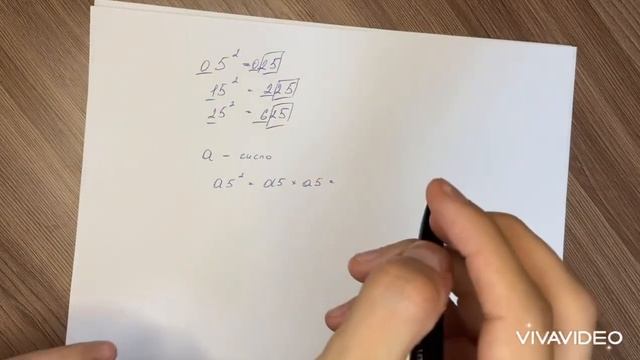 05² = 025
15² = 225
25² = 625
a - число
a5² = a5 × a5 =
VIVAVIDEO